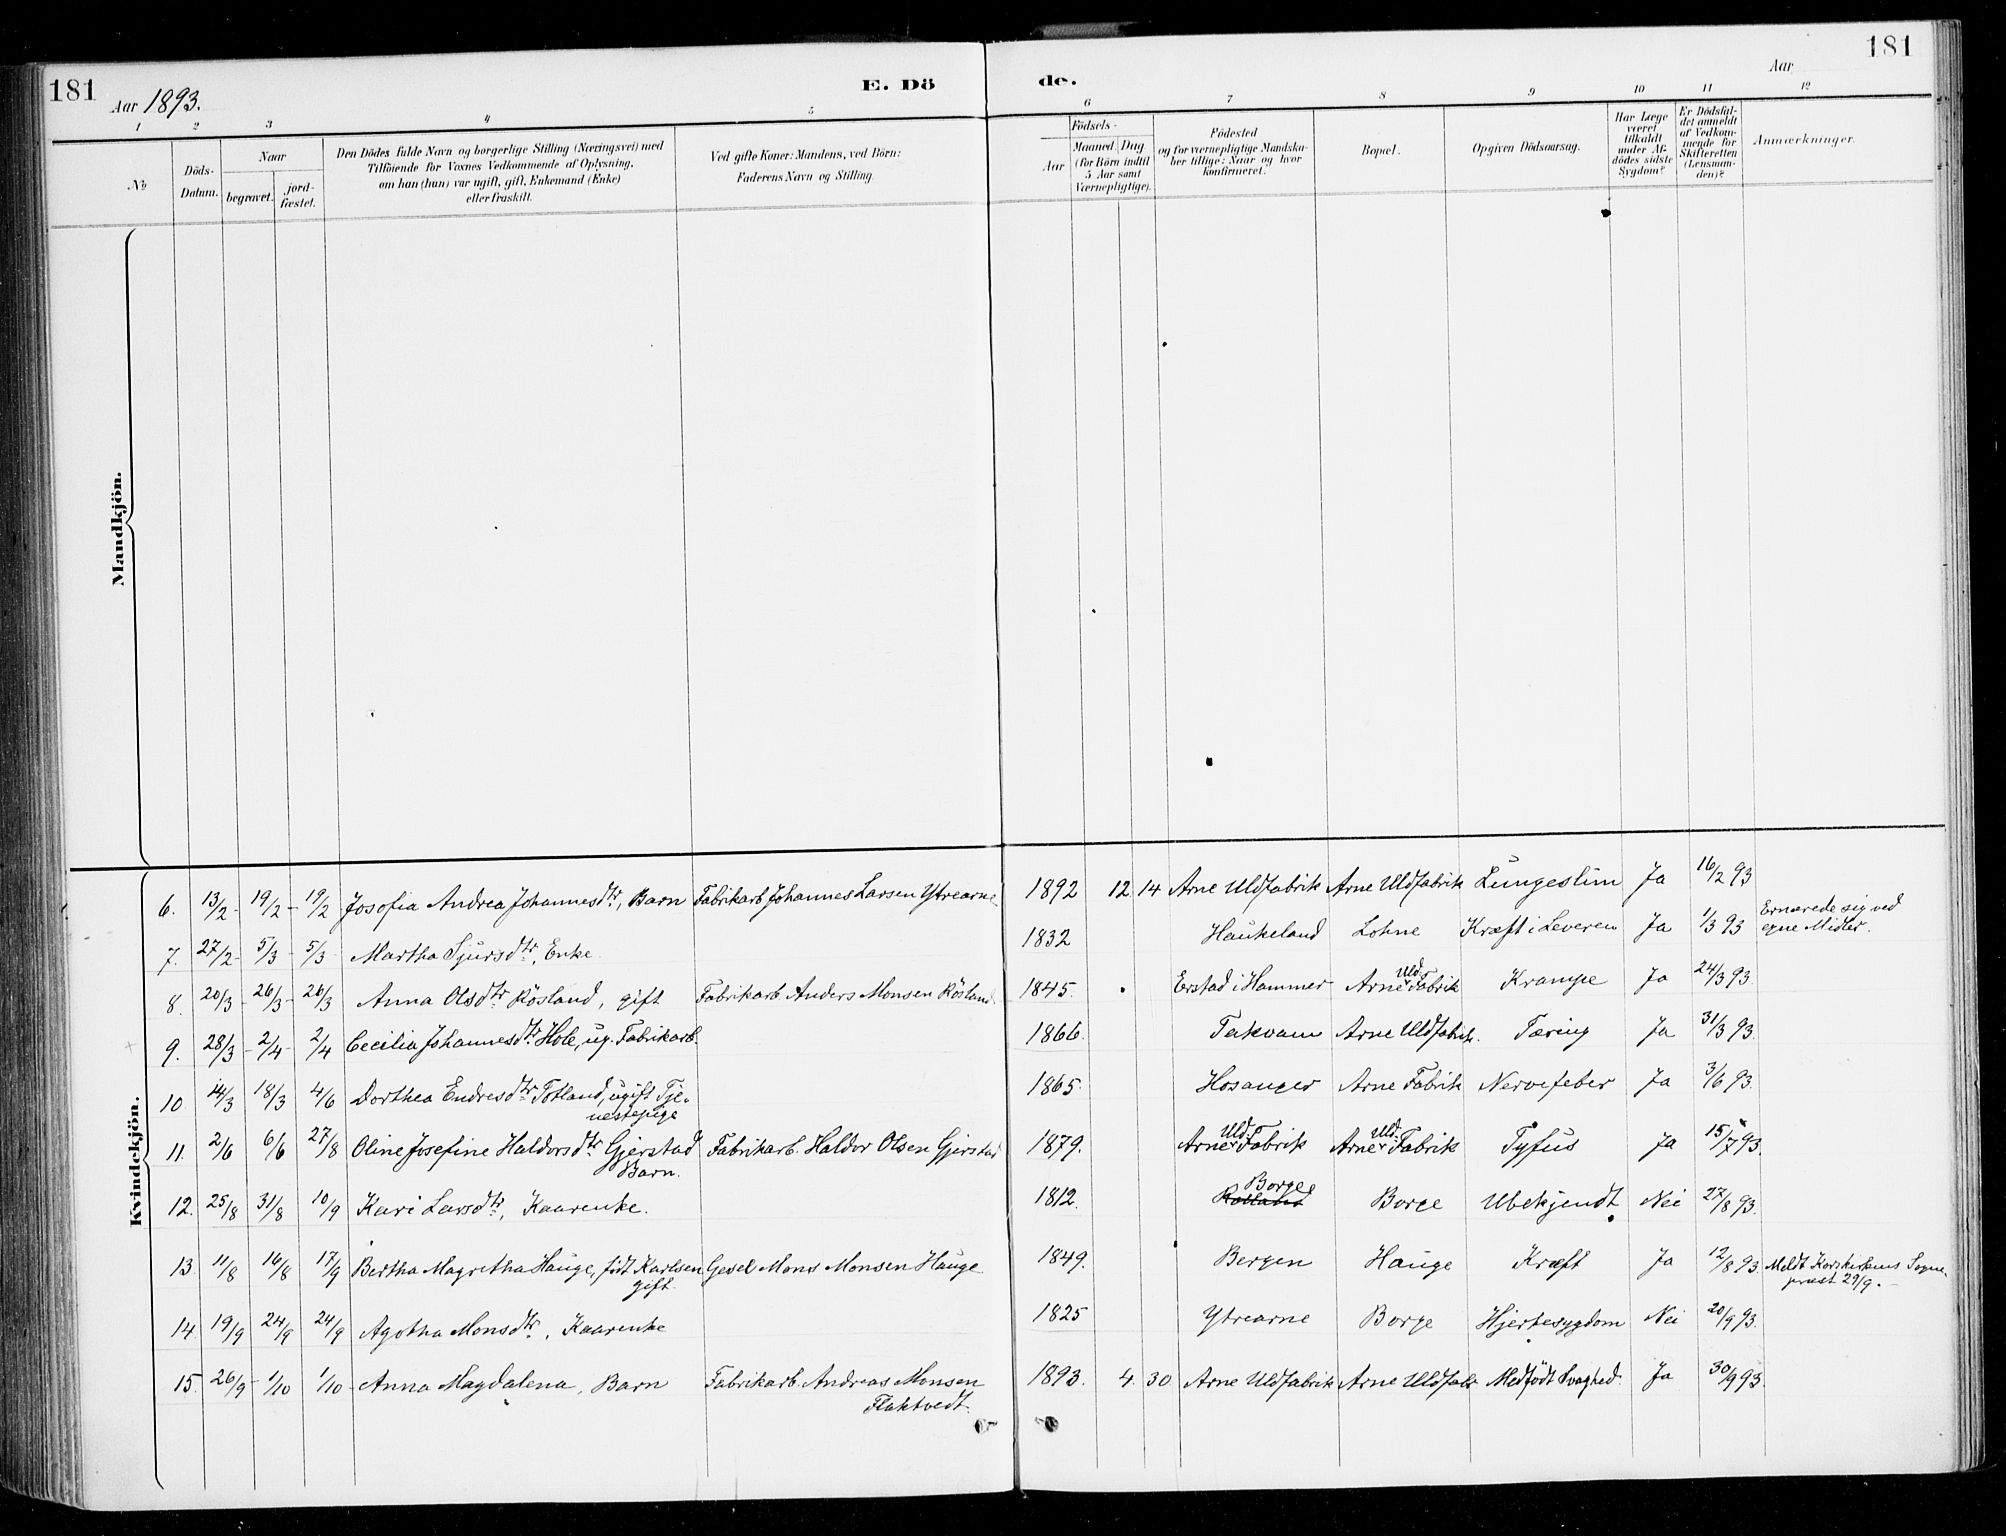 181
181
Aar 1893.
E. Dö de.
Aar
1 2 3 4 5 6 7 8 9 10 11 12
No
Döds-Datum.
Naar
begravet.
jord-fæstet.
Den Dödes fulde Navn og borgerlige Stilling (Næringsvei) med
Tilföiende for Voxnes Vedkommende af Oplysning,
om han (hun) var ugift, gift, Enkemand (Enke)
eller fraskilt.
Ved gifte Koner: Mandens, ved Börn:
Faderens Navn og Stilling.
Födsels-
Aar
Maaned. Dag.
(for Börn indtil
5 Aar samt
Værnepligtige).
Födested
og for værnepligtige Mandska-
ber tillige: Naar og hvor
konfirmeret.
Bopæl.
Opgiven Dödsaarsag.
Har Læge
været
tilkaldt
under Af-
dödes sidste
Sygdom?
Er Dödsfal-
det anmeldt
af Vedkom-
mende for
Skifteretten
(Lensman-
den)?
Anmærkninger.
Mandkjön.
Kvindekjön.
6. 13/2 - 19/2 - 19/2 Josefia Andrea Johannesdtr, Barn Fabrikarb. Johannes Larsen Ytrearne 1892 12 14 Arne Uldfabrik Arne Uldfabrik Lungeslim Ja 16/2 93
7. 27/2 - 5/3 - 5/3 Martha Sjursdtr, Enke. 1832 Haukeland Lohne Kræft i Leveren Ja 1/3 93 Ernærede sig ved
egne Midler.
8. 20/3 - 26/3 - 26/3 Anna Olsdtr Rösland, gift Fabrikarb. Anders Monsen Rösland. 1845. Erstad i Hammer Arne Uld-Fabrik Krampe Ja 24/3 93.
9. 28/3 - 2/4 - 2/4 Cecilia Johannesdtr Hole, ug. Fabrikarb. 1866. Takvam Arne Uldfabrik. Tæring Ja 31/3 93.
10 14/3 18/3 4/6 Dorthea Endresdtr Totland, ugift Tje-
nestepige 1865. Hosanger Arne Fabrik Nervefeber Ja 3/6 93.
11. 2/6 6/6 27/8 Oline Josefine Haldorsdtr Gjerstad
Barn. Fabrikarb. Haldor Olsen Gjerstad 1879. Arne Uld-Fabrik Arne Uld-Fabrik Tyfus Ja 15/7 93.
12. 25/8 31/8 10/9 Kari Larsdtr, Kaarenke. 1812. Borge Borge Ubekjendt Nei 27/8 93.
13 11/8 16/8 17/9 Bertha Magretha Hauge, født Karlsen
gift. Gesel Mons Monsen Hauge 1849. Bergen Hauge Kræft Ja 12/8 93. Meldt Korskirkens Sogne-
præst 29/9.
14. 19/9 24/9 24/9 Agotha Monsdtr, Kaarenke 1825 Ytrearne Borge Hjertesygdom Nei 20/9 93.
15. 26/9 - 1/10 1/10 Anna Magdalena, Barn Fabrikarb. Andreas Monsen
Flaktvedt. 1893. 4. 30 Arne Uldfabrik Arne Uldfabr. Medfödt Svaghed. Ja 30/9 93.